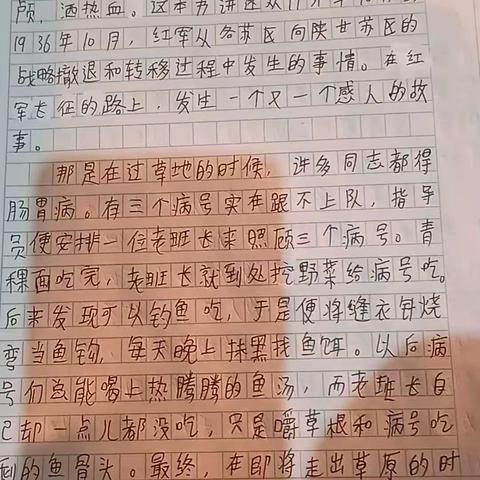 颅，洒热血。这本书讲述
1936年10月，红军从各苏区向陕甘苏区的
战略撤退和转移过程中发生的事情。在红
军长征的路上，发生一个又一个感人的故
事。
那是在过草地的时候，许多同志都得
肠胃病。有三个病号实在跟不上队，指导
员便安排一位老班长来照顾三个病号。青
稞面吃完，老班长就到处挖野菜给病号吃。
后来发现可以钓鱼吃，于是便将缝衣针烧
弯当鱼钩，每天晚上抹黑找鱼饵。以后病
号们总能喝上热腾腾的鱼汤，而老班长自
己却一点儿都没吃，只是嚼草根和病号吃
剩的鱼骨头。最终，在即将走出草原的时